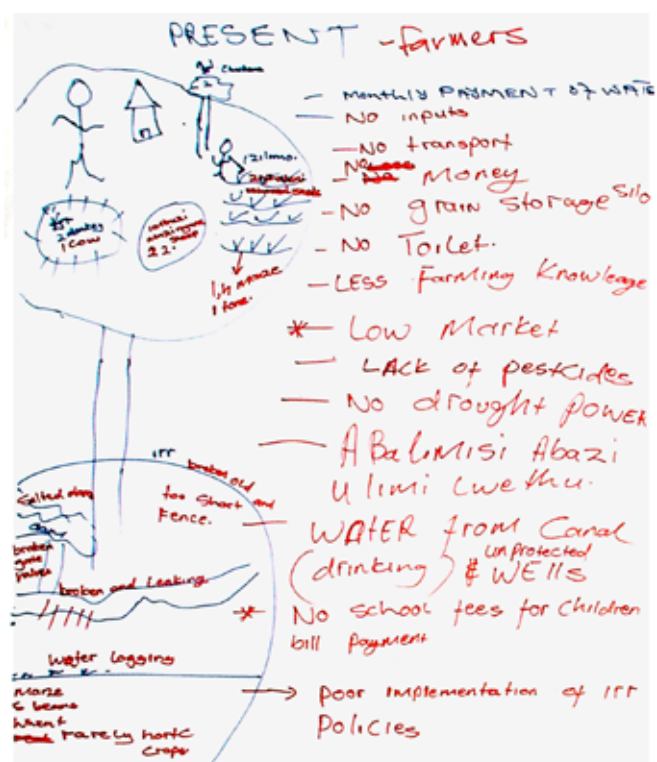 PRESENT - farmers
- Monthly PAYMENT OF WATE
- No inputs
- No transport
- No Money
- No grain storage silo
- No Toilet.
- LESS Farming Knowledge
* Low Market
- LACK of pesticides
- No drought POWER
- ABalimisi Abazi
ulimi Lwethu.
- WATER from Canal
(drinking) & unprotected WELLS
* No school fees for Children
bill payment
→ Poor implementation of irr
Policies
2 donkey
1 cow
22.
1,4 maize
1 tone.
irr
broken old and
too short
Fence.
Salted dam
dam
broken
gate
valves
broken and Leaking
water logging
maize
s beans
wheat
rarely hortc
crops